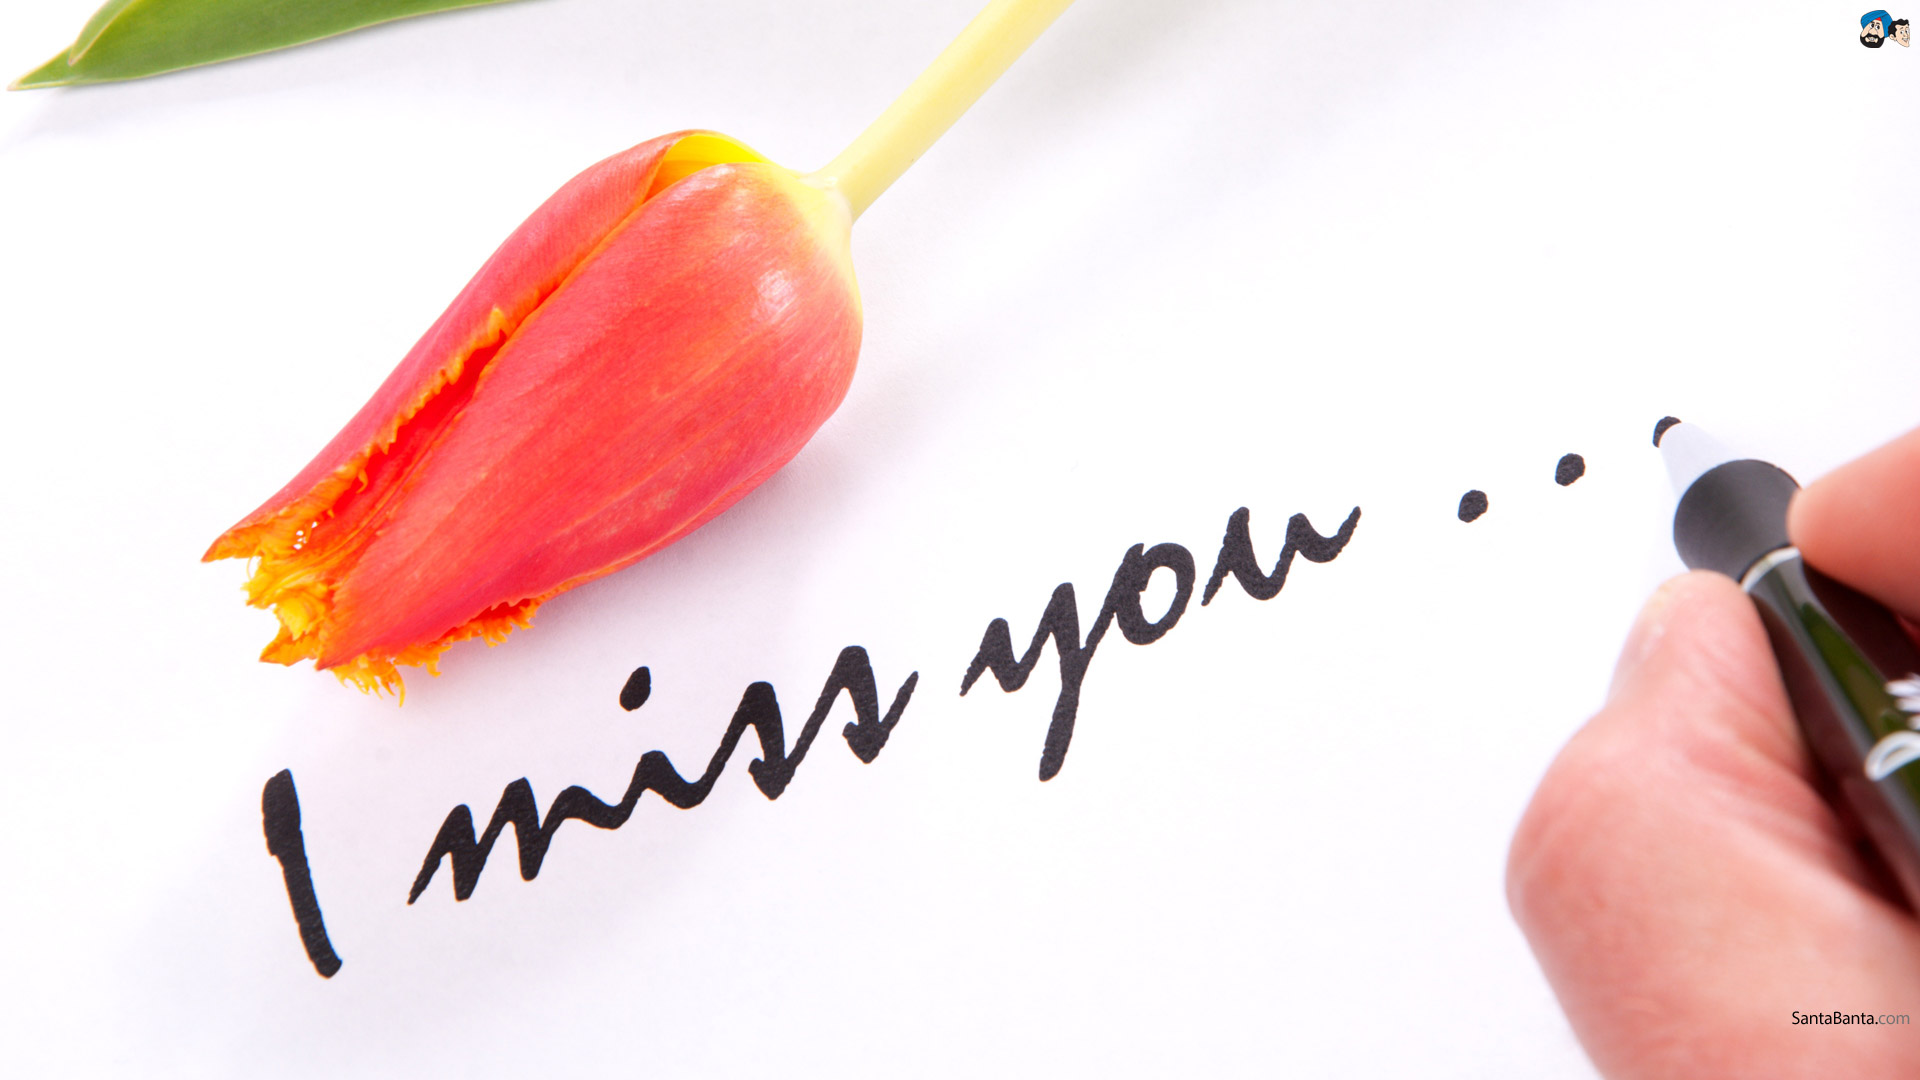 I miss you ...
SantaBanta.com